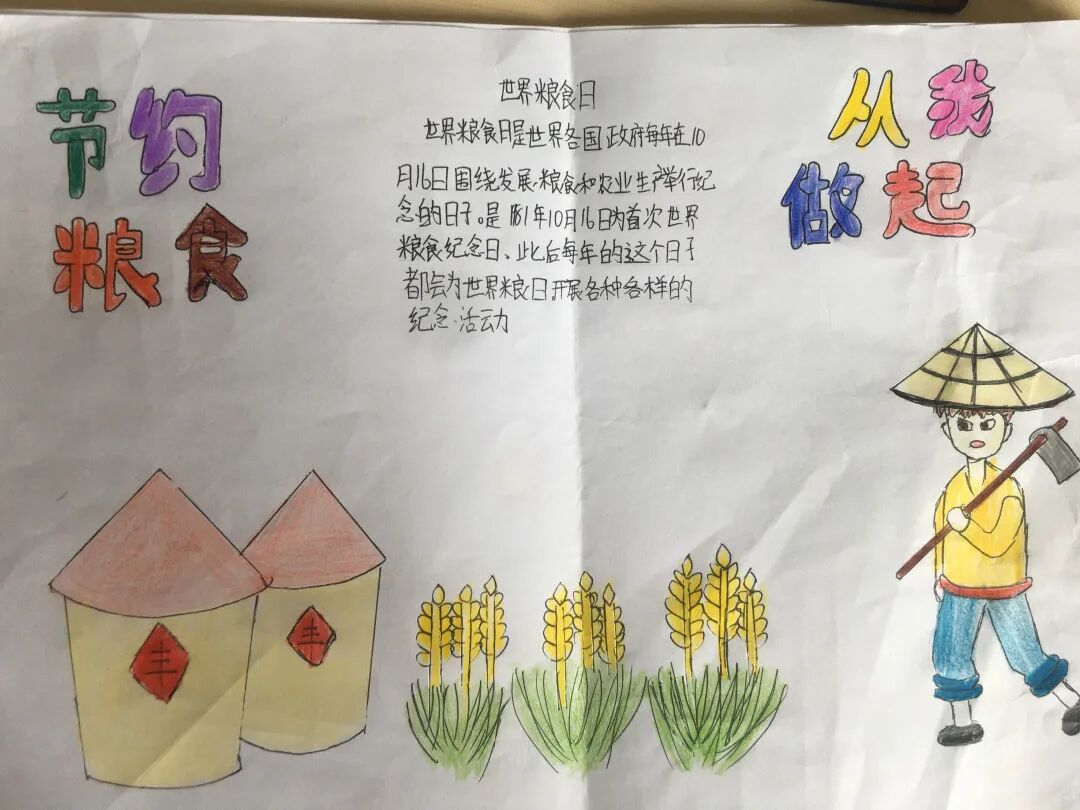 节约
粮食
世界粮食日
世界粮食日是世界各国政府每年在10
月16日围绕发展粮食和农业生产举行纪
念的日子。是1981年10月16日为首次世界
粮食纪念日、此后每年的这个日子
都会为世界粮日开展各种各样的
纪念活动
从我
做起
丰
丰